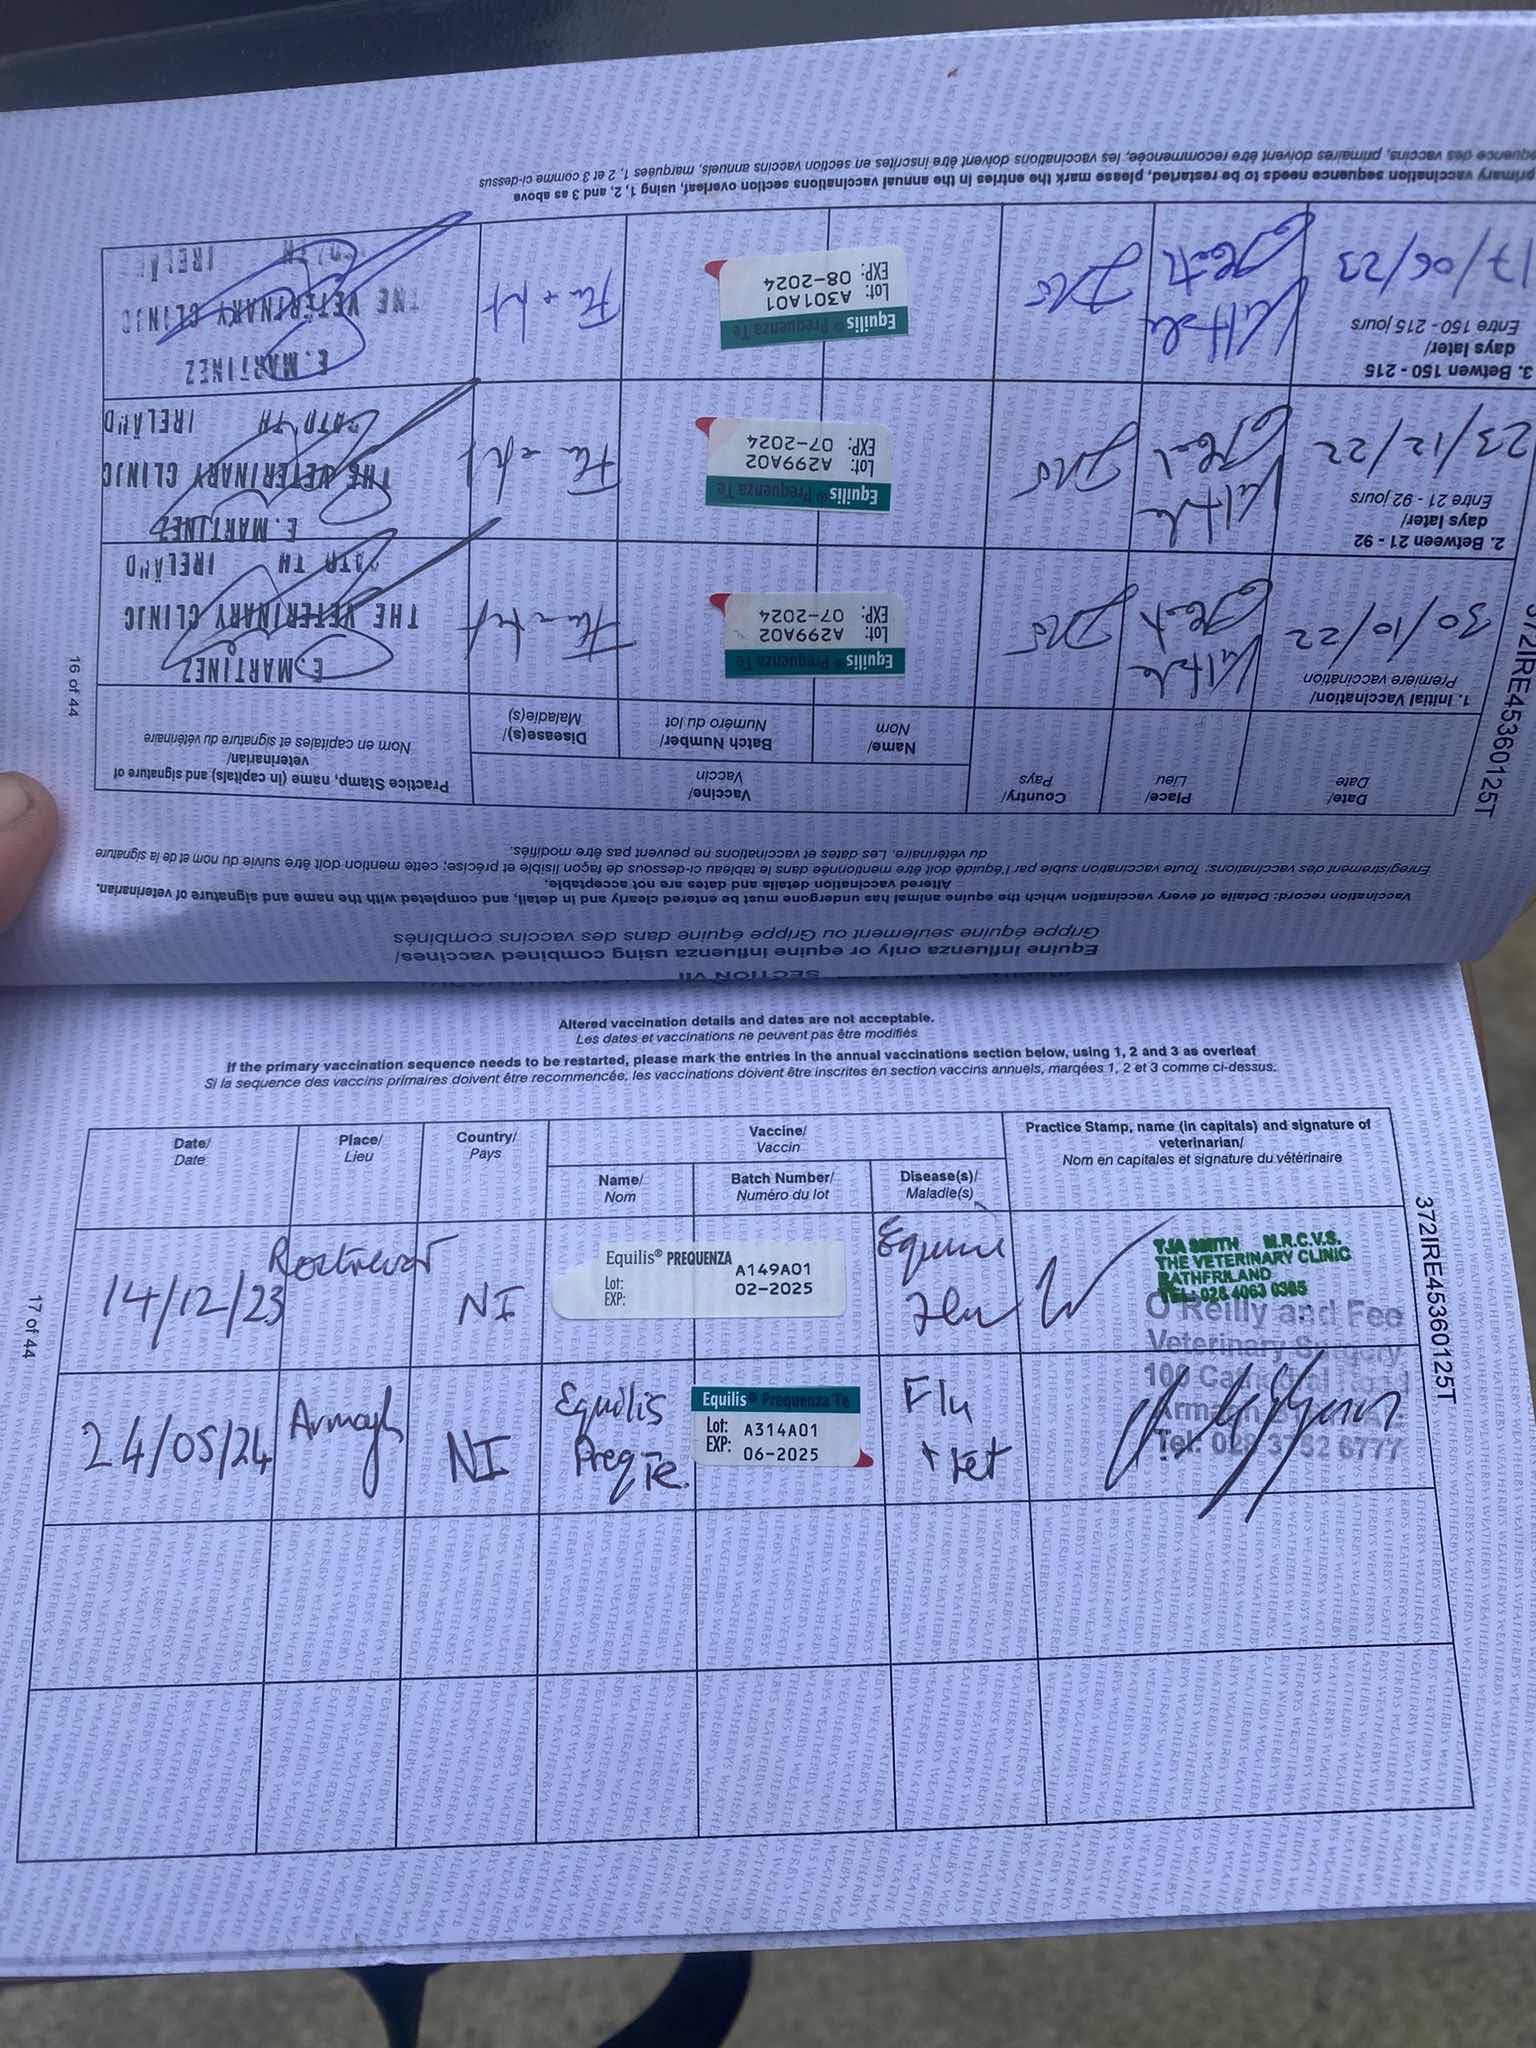 SECTION VII
Equine influenza only or equine influenza using combined vaccines/
Grippe équine seulement ou Grippe équine dans des vaccins combinés
Vaccination record: Details of every vaccination which the equine animal has undergone must be entered clearly and in detail, and completed with the name and signature of veterinarian.
Altered vaccination details and dates are not acceptable.
Enregistrement des vaccinations: Toute vaccination subie par l'équidé doit être mentionnée dans le tableau ci-dessous de façon lisible et précise; cette mention doit être suivie du nom et de la signature
du vétérinaire. Les dates et vaccinations ne peuvent pas être modifiés.
Date/
Date
Place/
Lieu
Country/
Pays
Vaccine/
Vaccin
Name/
Nom
Batch Number/
Numéro du lot
Disease(s)/
Maladie(s)
Practice Stamp, name (in capitals) and signature of
veterinarian/
Nom en capitales et signature du vétérinaire
1. Initial Vaccination/
Première vaccination
30/10/22
Equilis® Prequenza Te
Lot: A299A02
EXP: 07-2024
E. MARTINEZ
THE VETERINARY CLINIC
IRELAND
2. Between 21 - 92
days later/
Entre 21 - 92 jours
23/12/22
Equilis® Prequenza Te
Lot: A299A02
EXP: 07-2024
E. MARTINEZ
THE VETERINARY CLINIC
IRELAND
3. Betwen 150 - 215
days later/
Entre 150 - 215 jours
17/06/23
Equilis® Prequenza Te
Lot: A301A01
EXP: 08-2024
E. MARTINEZ
THE VETERINARY CLINIC
primary vaccination sequence needs to be restarted, please mark the entries in the annual vaccinations section overleaf, using 1, 2, and 3 as above
des vaccins, primaires doivent être recommencée, les vaccinations doivent être inscrites en section vaccins annuels, marquées 1, 2 et 3 comme ci-dessus
16 of 44
Altered vaccination details and dates are not acceptable.
Les dates et vaccinations ne peuvent pas être modifiés
If the primary vaccination sequence needs to be restarted, please mark the entries in the annual vaccinations section below, using 1, 2 and 3 as overleaf
Si la sequence des vaccins primaires doivent être recommencée, les vaccinations doivent être inscrites en section vaccins annuels, marqées 1, 2 et 3 comme ci-dessus.
Date/
Date
Place/
Lieu
Country/
Pays
Vaccine/
Vaccin
Name/
Nom
Batch Number/
Numéro du lot
Disease(s)/
Maladie(s)
Practice Stamp, name (in capitals) and signature of
veterinarian/
Nom en capitales et signature du vétérinaire
14/12/23
Rostrevor
NI
Equilis® PREQUENZA
Lot: A149A01
EXP: 02-2025
Equine
Flu
TJA SMITH M.R.C.V.S.
THE VETERINARY CLINIC
RATHFRILAND
TEL: 028 4063 0385
24/05/24
Armagh
NI
Equilis
Preq Te.
Equilis® Prequenza Te
Lot: A314A01
EXP: 06-2025
Flu
+ tet
O'Reilly and Fee
Veterinary Surgery
Armagh
Tel: 028 3752 6777
372IRE45360125T
17 of 44